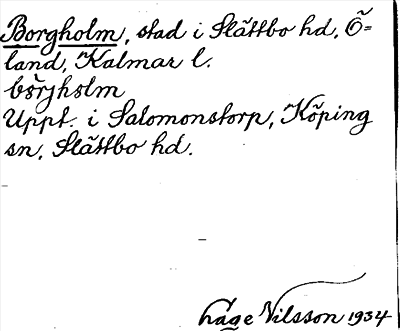 Borgholm, stad i Slättbo hd, Ö-
land, Kalmar l.
börjhslm
Uppt. i Salomonstorp, Köping
sn, Slättbo hd.
Låge Nilsson 1934